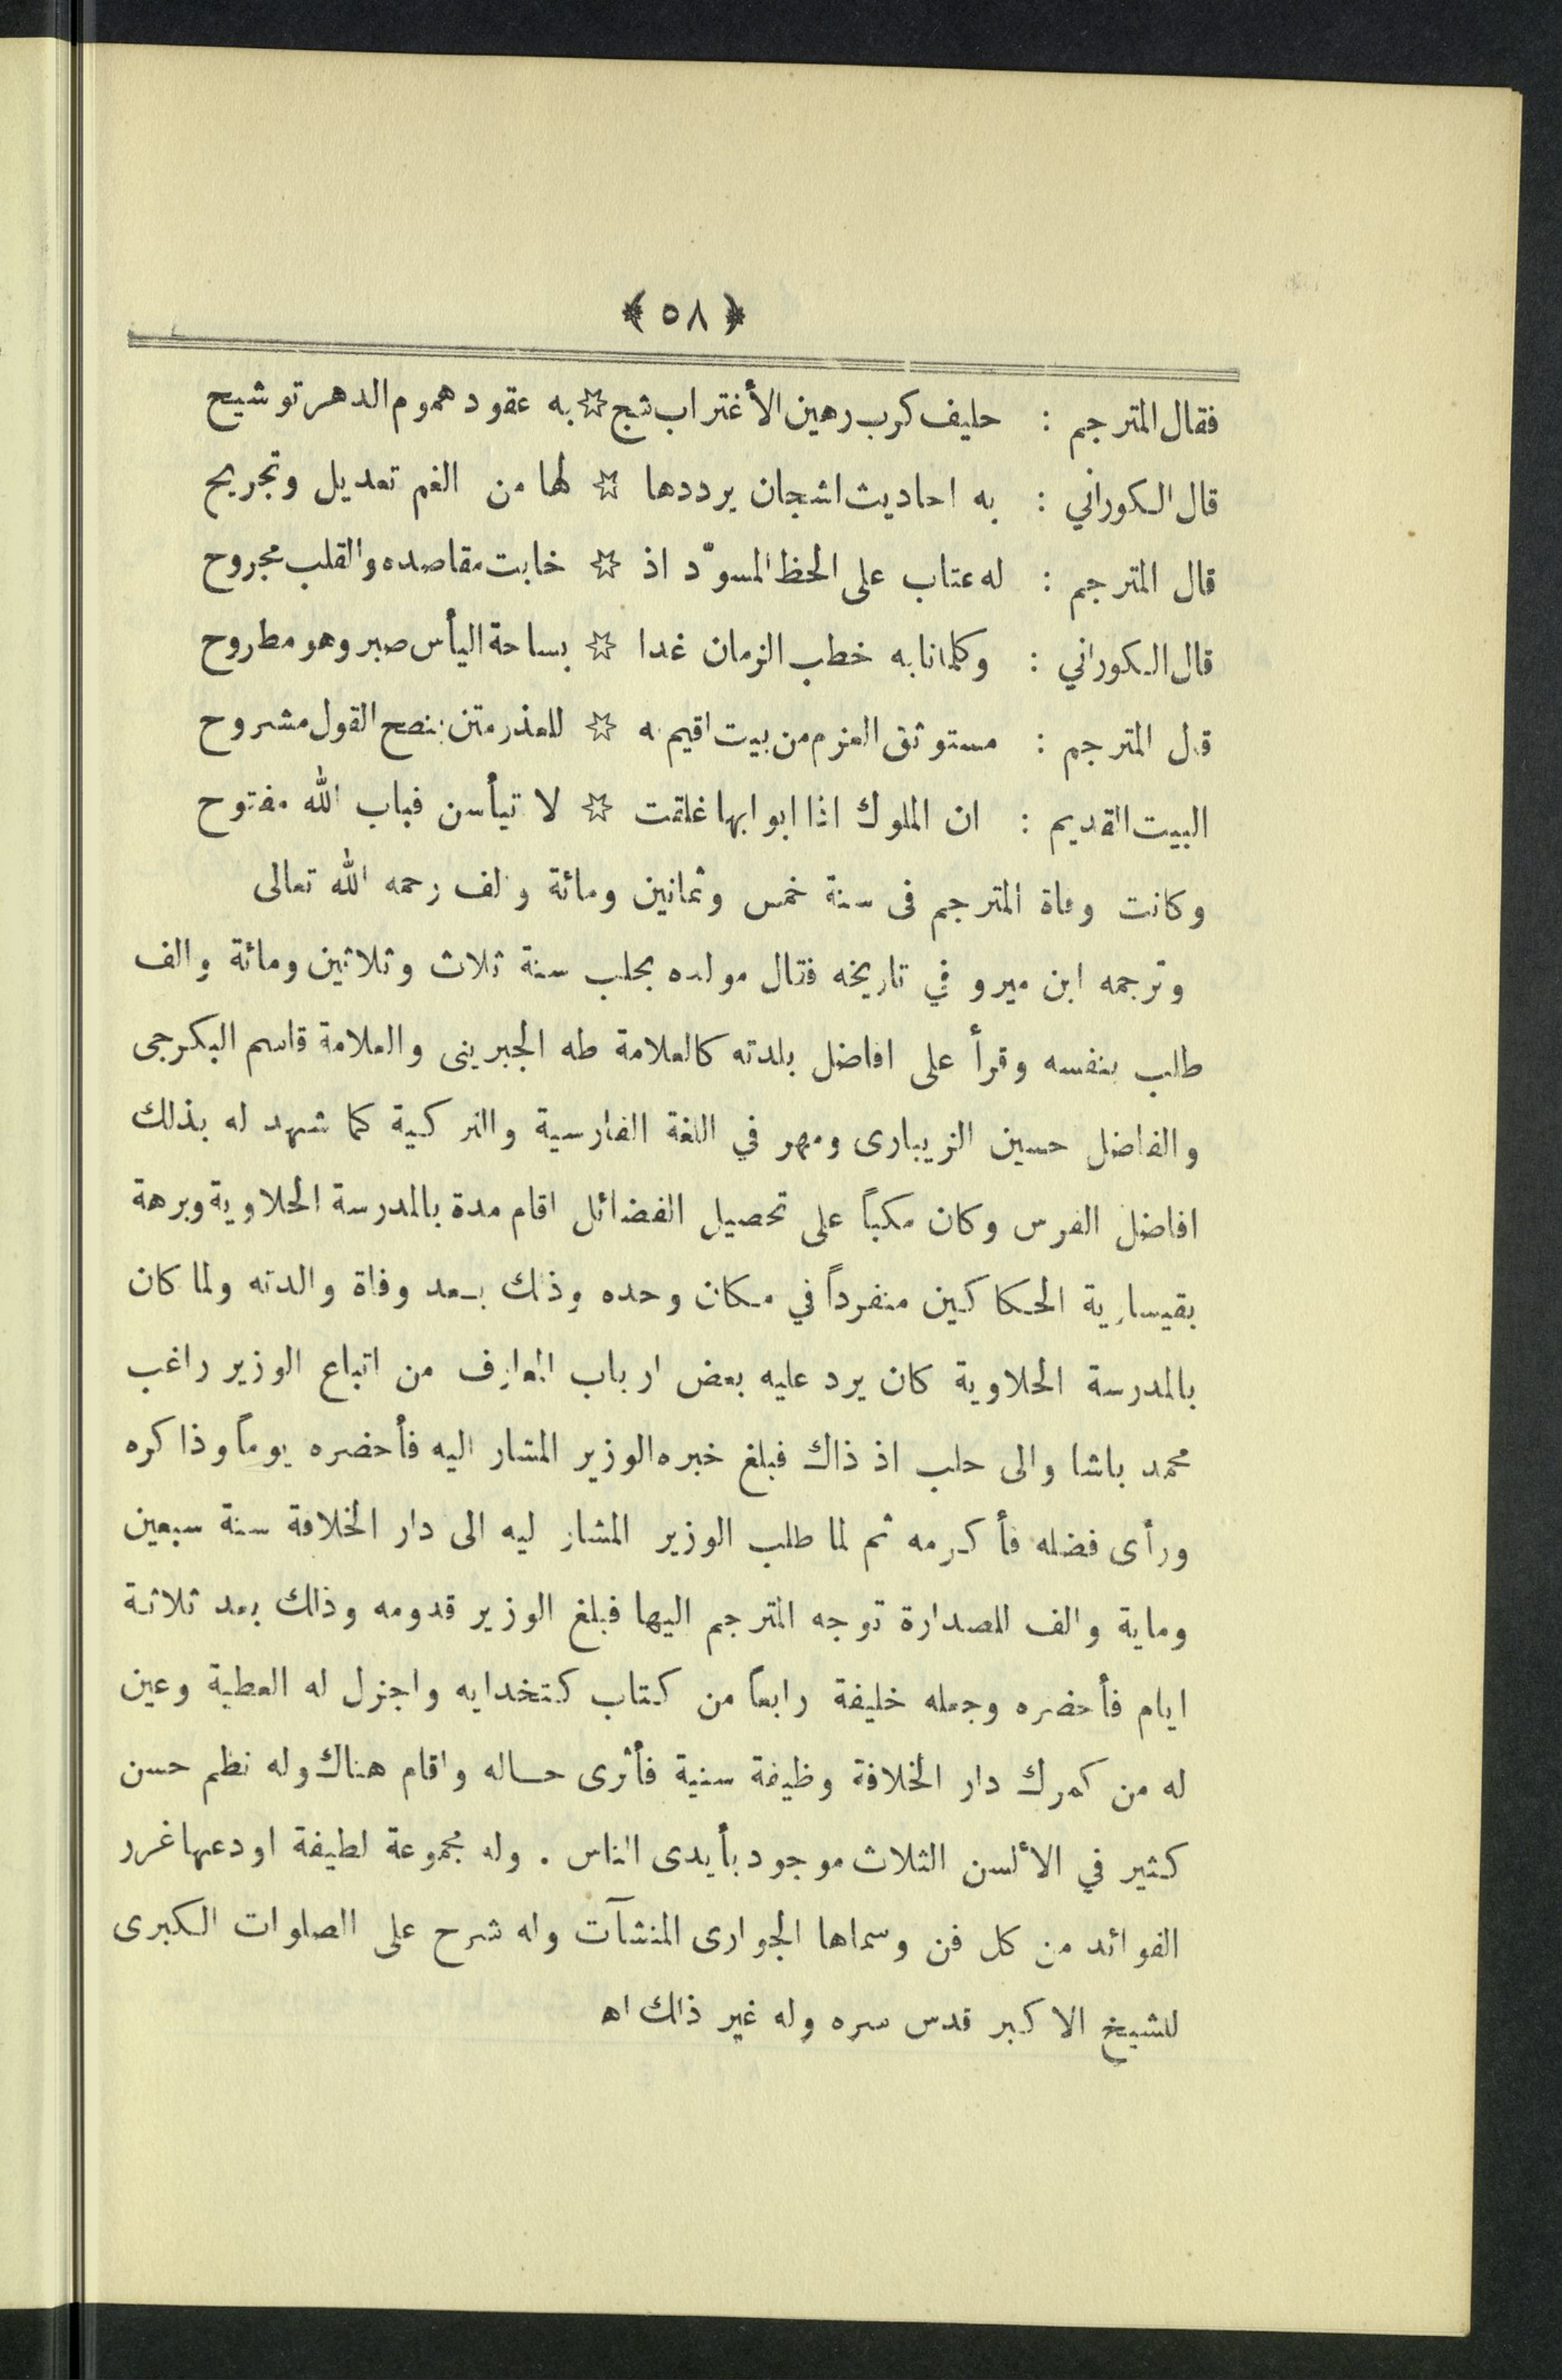 ﴿ ٥٨ ﴾
فقال المترجم : حليف كرب رهين الأغتراب شج ☆ به عقود هموم الدهر توشيح
قال الكوراني : به احاديث اشجان يرددها ☆ لها من الغم تعديل وتجريح
قال المترجم : له عتاب على الحظ المسوّد اذ ☆ خابت مقاصده والقلب مجروح
قال الكوراني : وكلما نابه خطب الزمان غدا ☆ بساحة اليأس صبر وهو مطروح
قال المترجم : مستوثق العزم من بيت اقيم به ☆ للعذر متن بنصح القول مشروح
البيت القديم : ان الملوك اذا ابوابها غلقت ☆ لا تيأسن فباب الله مفتوح
وكانت وفاة المترجم فى سنة خمس وثمانين ومائة والف رحمه الله تعالى
وترجمه ابن ميرو في تاريخه فقال مولده بحلب سنة ثلاث وثلاثين ومائة والف
طلب بنفسه وقرأ على افاضل بلدته كالعلامة طه الجبرينى والعلامة قاسم البكرجى
والفاضل حسين الزيبارى ومهر في اللغة الفارسية والتركية كما شهد له بذلك
افاضل الفرس وكان مكباً على تحصيل الفضائل اقام مدة بالمدرسة الحلاوية وبرهة
بقيسارية الحكاكين منفرداً في مكان وحده وذلك بعد وفاة والدته ولما كان
بالمدرسة الحلاوية كان يرد عليه بعض ارباب المعارف من اتباع الوزير راغب
محمد باشا والى حلب اذ ذاك فبلغ خبره الوزير المشار اليه فأحضره يوماً وذاكره
ورأى فضله فأكرمه ثم لما طلب الوزير المشار ليه الى دار الخلافة سنة سبعين
وماية والف للصدارة توجه المترجم اليها فبلغ الوزير قدومه وذلك بعد ثلاثة
ايام فأحضره وجعله خليفة رابعاً من كتاب كتخدايه واجزل له العطية وعين
له من كمرك دار الخلافة وظيفة سنية فأثرى حاله واقام هناك وله نظم حسن
كثير في الألسن الثلاث موجود بأيدى الناس . وله مجموعة لطيفة اودعها غرر
الفوائد من كل فن وسماها الجوارى المنشآت وله شرح على الصلوات الكبرى
للشيخ الاكبر قدس سره وله غير ذلك اه